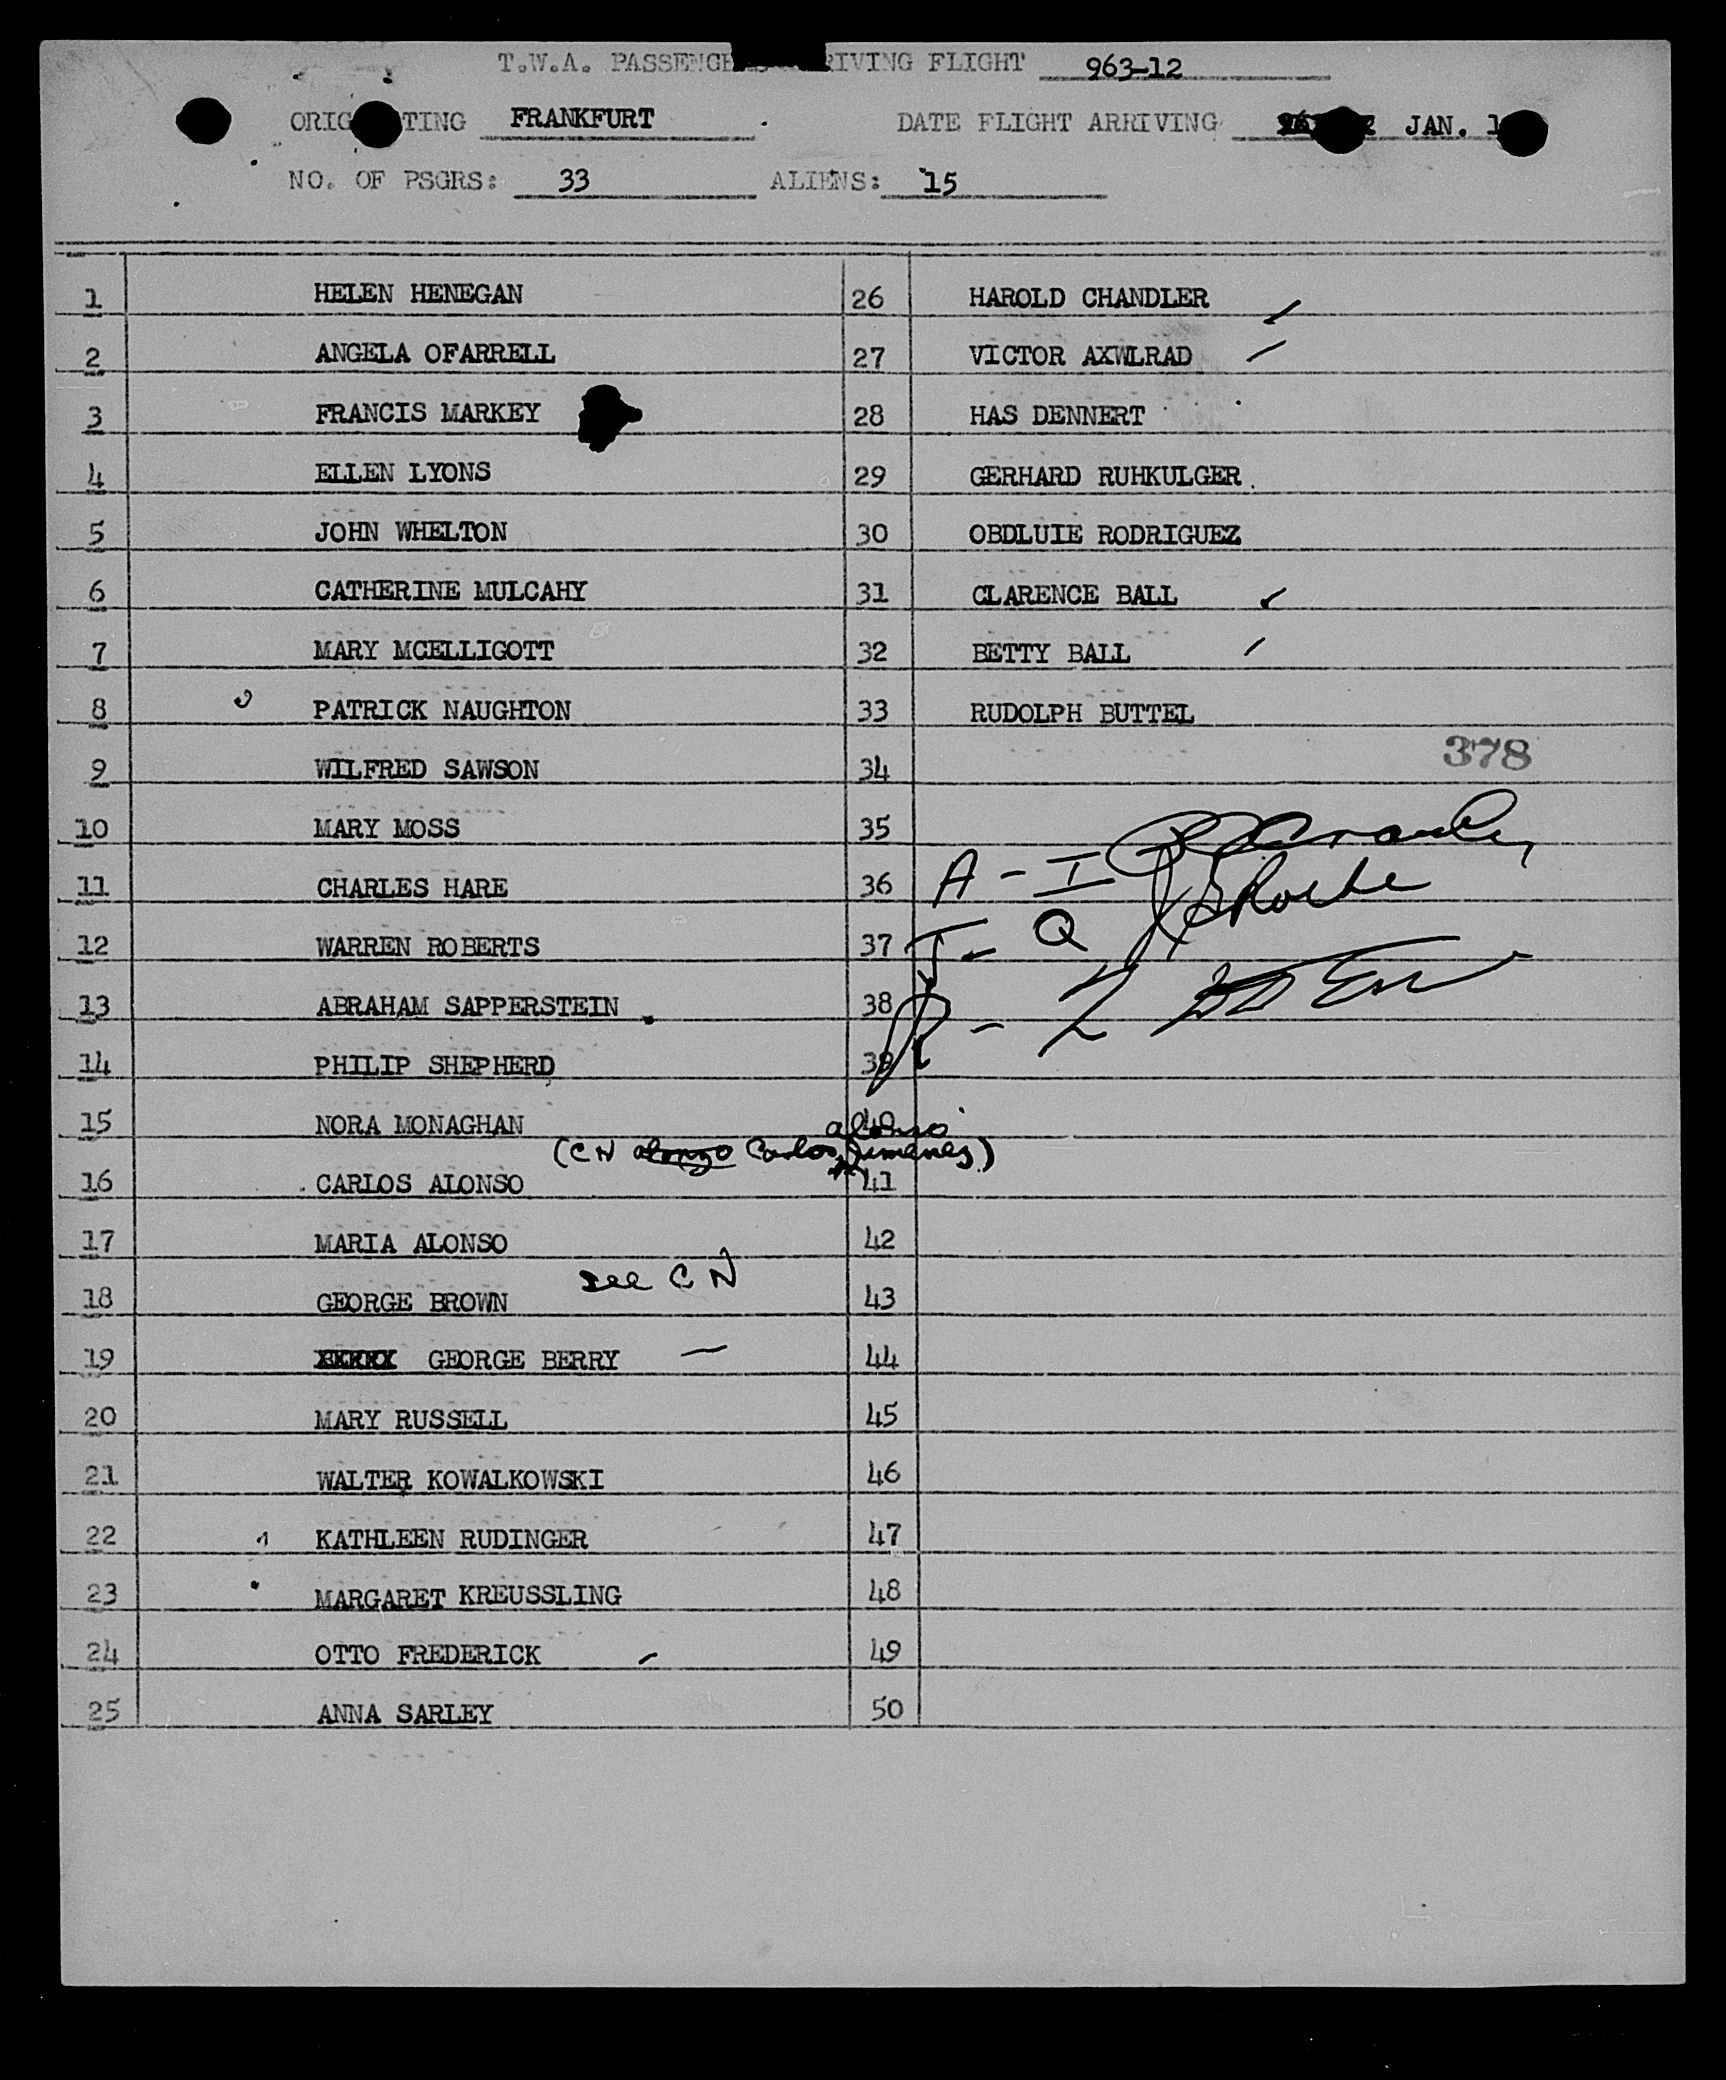 T.W.A. PASSENGERS ARRIVING FLIGHT 963-12
ORIGINATING FRANKFURT DATE FLIGHT ARRIVING JAN. 1
NO. OF PSGRS: 33 ALIENS: 15
1 HELEN HENEGAN
2 ANGELA OFARRELL
3 FRANCIS MARKEY
4 ELLEN LYONS
5 JOHN WHELTON
6 CATHERINE MULCAHY
7 MARY MCELLIGOTT
8 PATRICK NAUGHTON
9 WILFRED SAWSON
10 MARY MOSS
11 CHARLES HARE
12 WARREN ROBERTS
13 ABRAHAM SAPPERSTEIN
14 PHILIP SHEPHERD
15 NORA MONAGHAN
alonso
(CN alonzo Carlos Jimenes)
16 CARLOS ALONSO
17 MARIA ALONSO
see CN
18 GEORGE BROWN
19 XXXXX GEORGE BERRY
20 MARY RUSSELL
21 WALTER KOWALKOWSKI
22 KATHLEEN RUDINGER
23 MARGARET KREUSSLING
24 OTTO FREDERICK
25 ANNA SARLEY
26 HAROLD CHANDLER
27 VICTOR AXWLRAD
28 HAS DENNERT
29 GERHARD RUHKULGER
30 OBDLUIE RODRIGUEZ
31 CLARENCE BALL
32 BETTY BALL
33 RUDOLPH BUTTEL
378
34
35
36 A - I
37 J - Q
38 R - Z
39
40
41
42
43
44
45
46
47
48
49
50